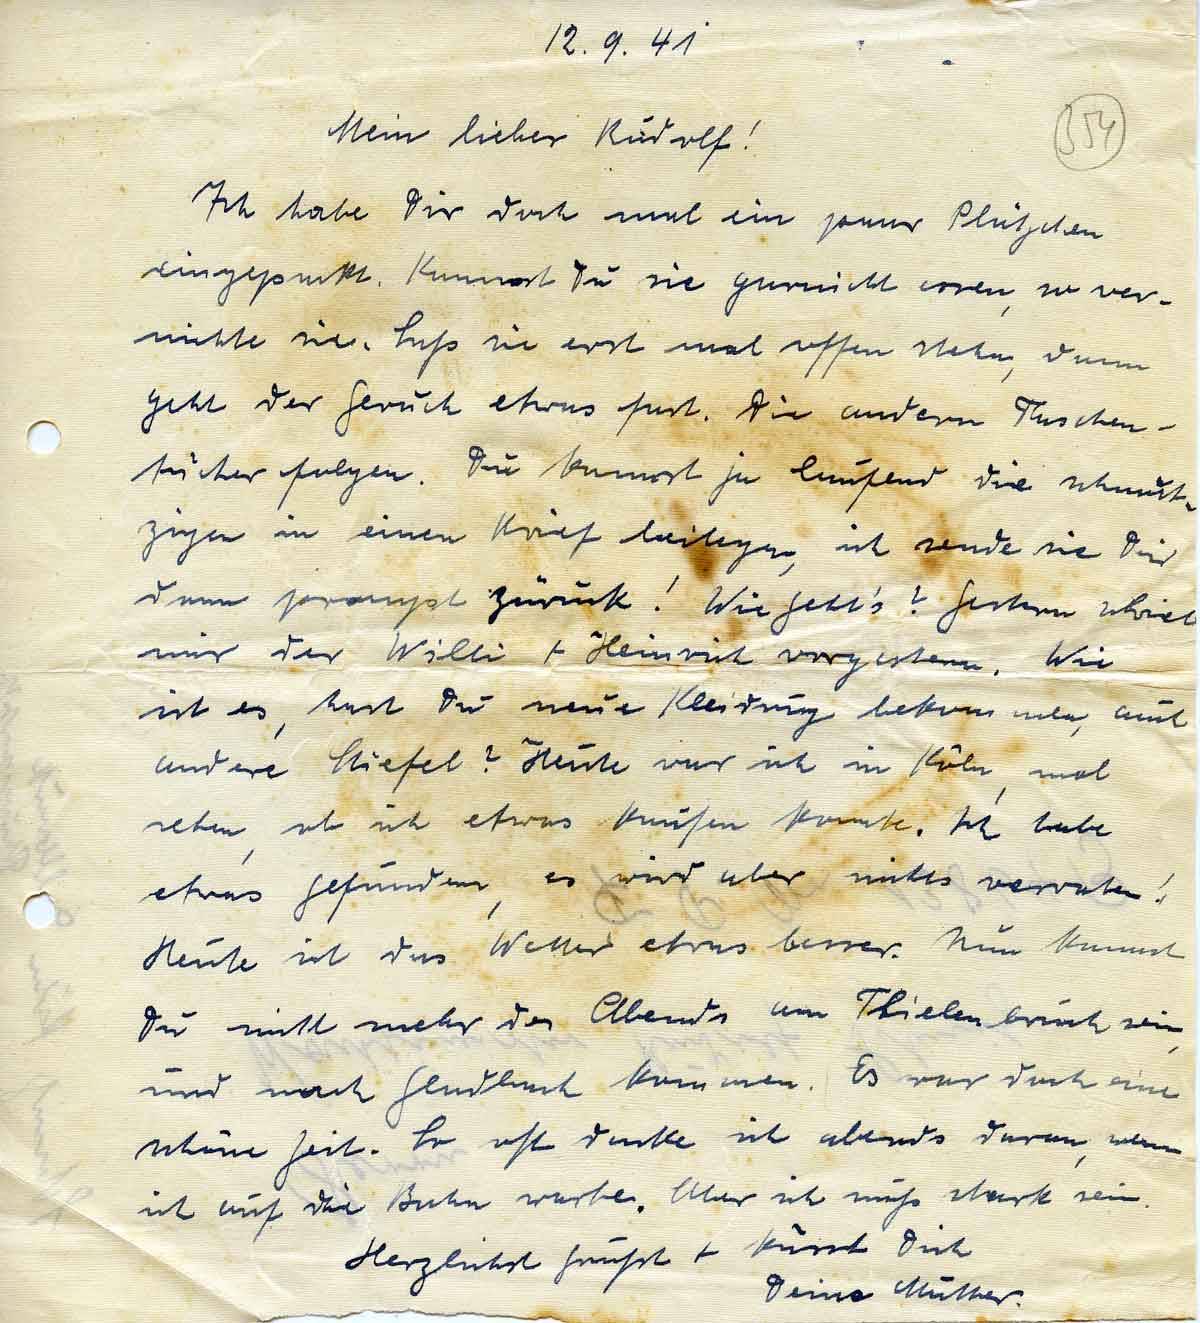 12. 9. 41
354
Mein lieber Rudolf!
Ich habe Dir doch mal ein paar Plätzchen
eingepackt. Kannst Du sie garnicht essen, so ver-
nichte sie. Laß sie erst mal offen stehn, dann
geht der Geruch etwas fort. Die andern Taschen-
tücher folgen. Du kannst ja laufend die schmut-
zigen in einen Brief beilegen, ich sende sie Dir
dann prompt zurück! Wie geht's? Gestern schrieb
mir der Willi + Heinrich vorgestern. Wie
ist es, hast Du neue Kleidung bekommen, auch
andere Stiefel? Heute war ich in Köln, mal
sehen, ob ich etwas kaufen konnte. Ich habe
etwas gefunden, es wird aber nichts verraten!
Heute ist das Wetter etwas besser. Nun kannst
Du nicht mehr des Abends am Thielenbruch sein,
und nach Gladbach kommen. Es war doch eine
schöne Zeit. So oft denke ich abends daran, wenn
ich auf die Bahn warte. Aber ich muß stark sein.
Herzlichst grüßt + küsst Dich
Deine Mutter.